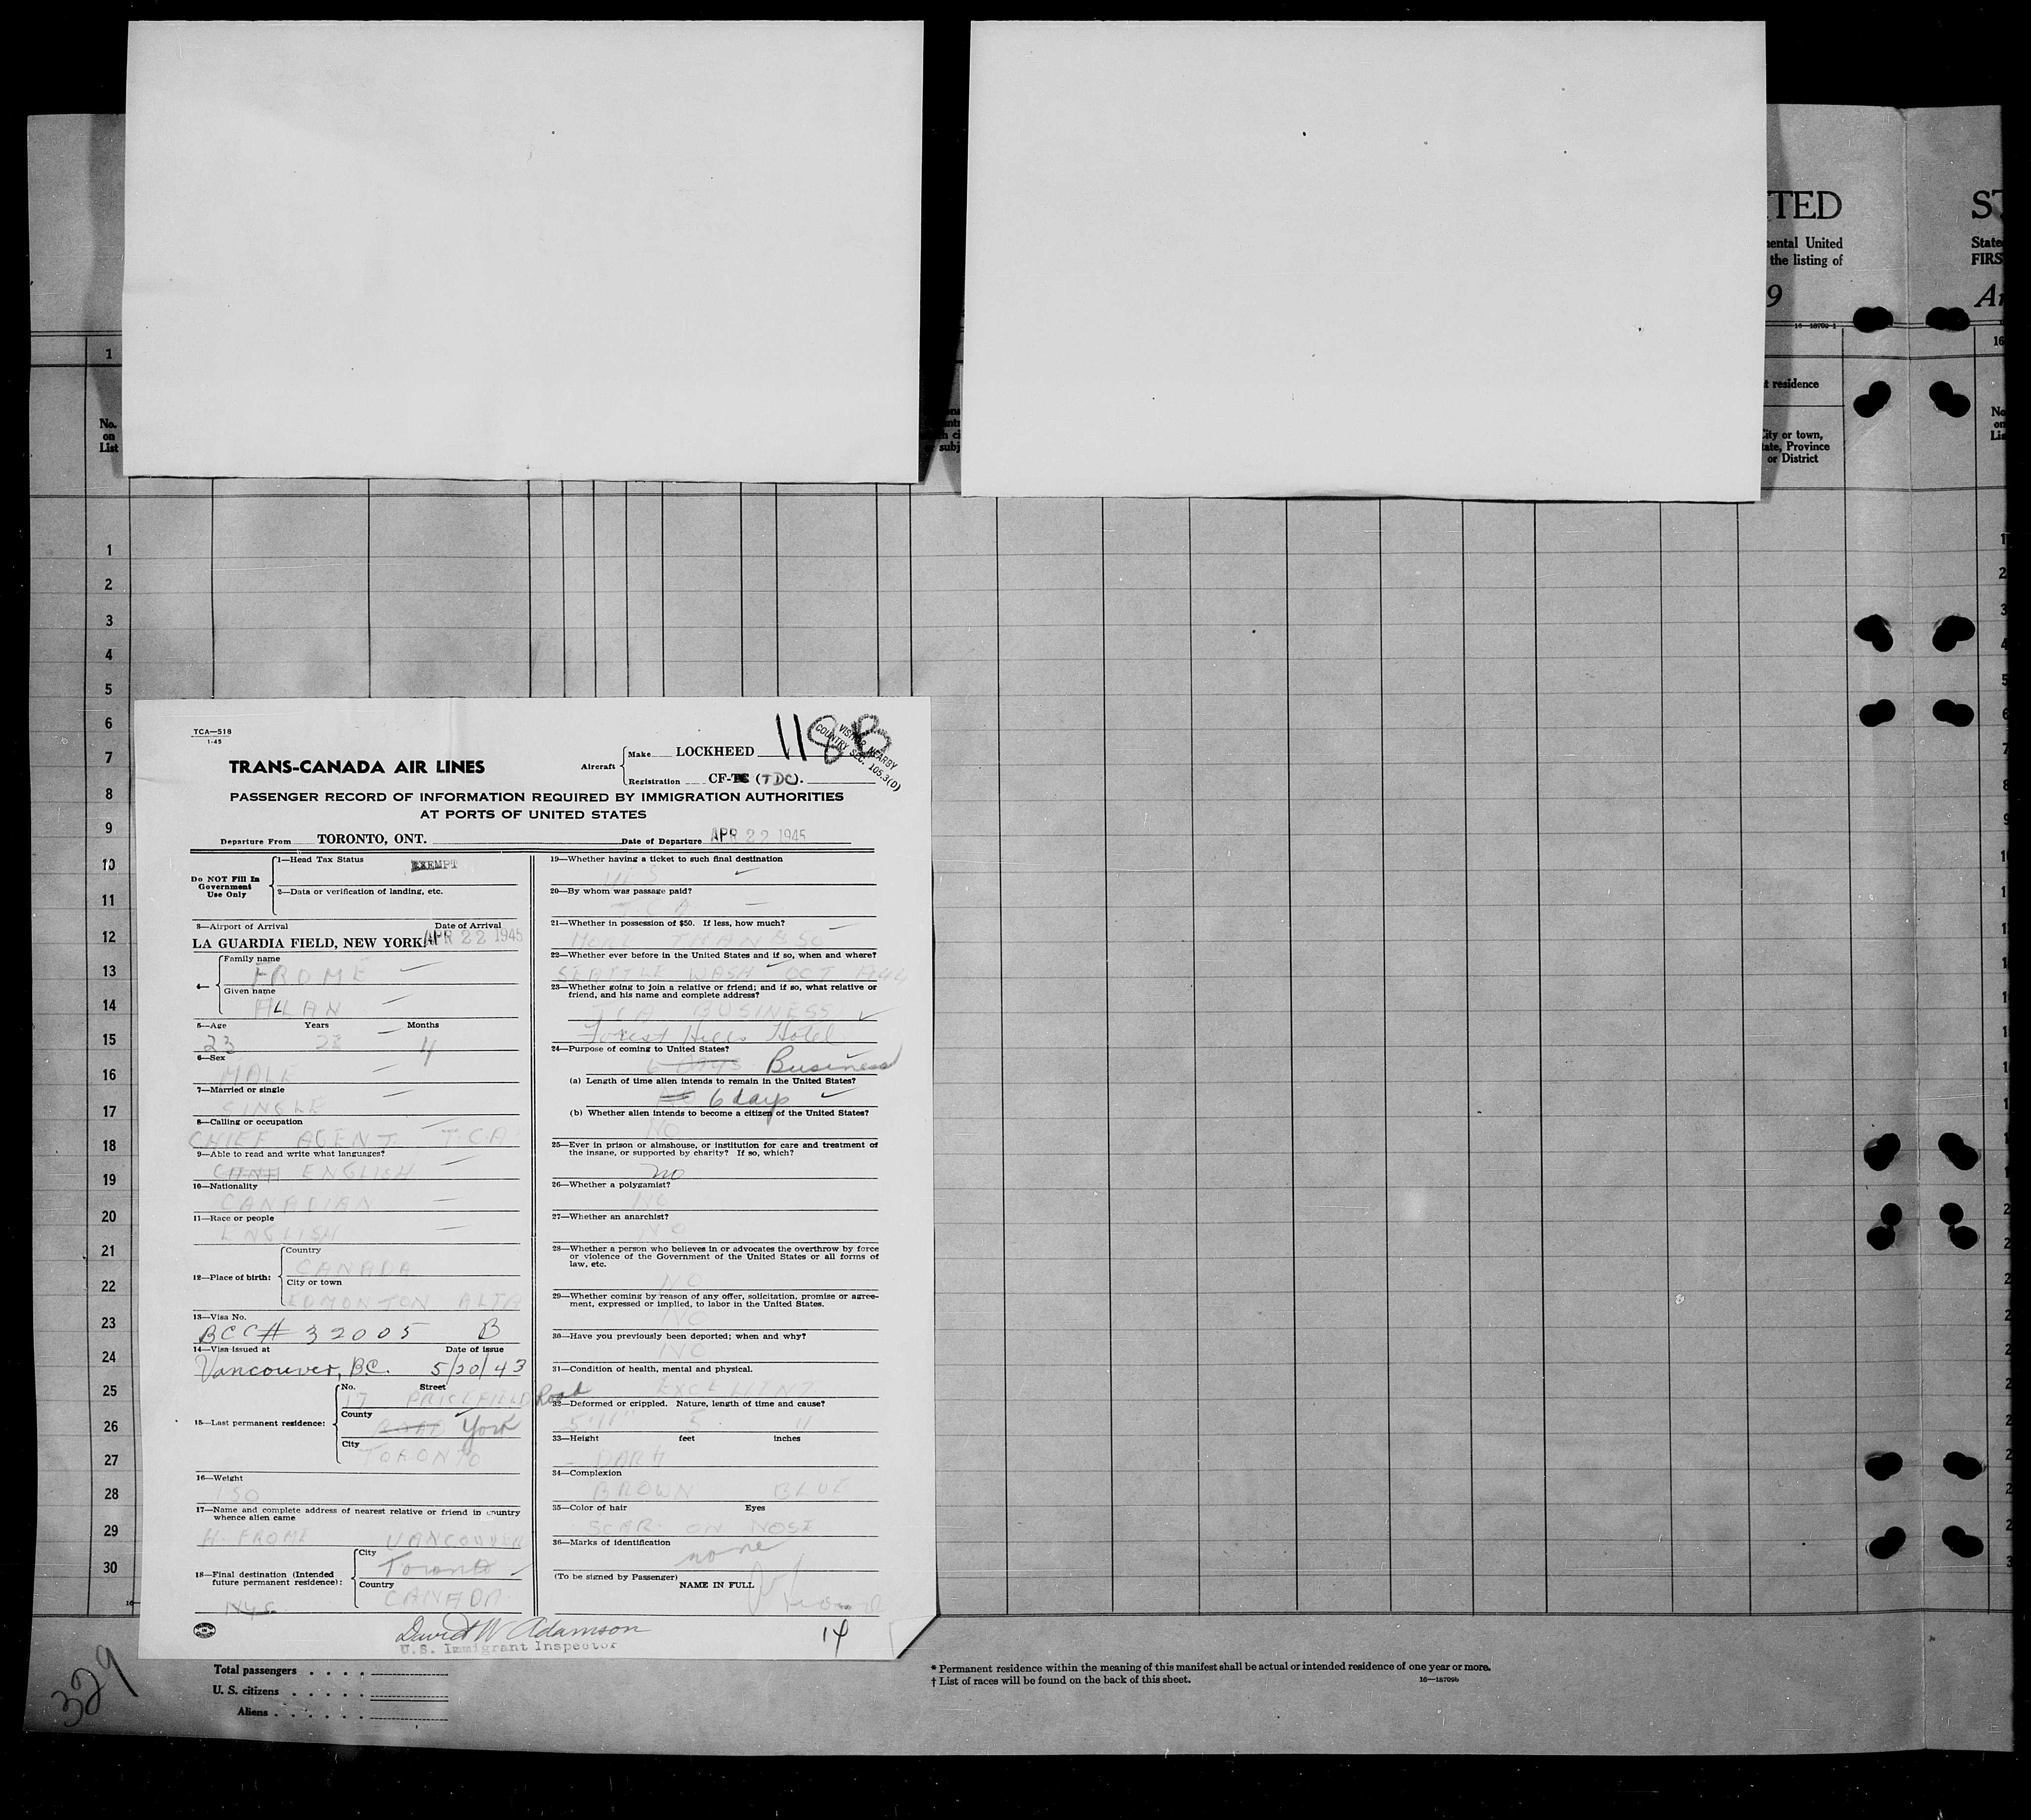 TED
ST
mental United
the listing of
State
FIRS
9
16—18709-1
1
16
t residence
No.
on
List
City or town,
ate, Province
or District
1
2
3
4
5
6
7
8
9
10
11
12
13
14
15
16
17
18
19
20
21
22
23
24
25
26
27
28
29
30
TCA—518
1-45
118 B
VISITOR NEARBY
COUNTRY SEC. 105.3(D)
TRANS-CANADA AIR LINES
Aircraft
Make LOCKHEED
Registration CF- (TDC).
PASSENGER RECORD OF INFORMATION REQUIRED BY IMMIGRATION AUTHORITIES
AT PORTS OF UNITED STATES
Departure From TORONTO, ONT. Date of Departure APR 22 1945
Do NOT Fill In
Government
Use Only
1—Head Tax Status EXEMPT
2—Data or verification of landing, etc.
3—Airport of Arrival Date of Arrival
LA GUARDIA FIELD, NEW YORK APR 22 1945
4—
Family name
FROME
Given name
ALAN
5—Age Years Months
23 23 4
6—Sex
MALE
7—Married or single
SINGLE
8—Calling or occupation
CHIEF AGENT TCA
9—Able to read and write what languages?
ENGLISH
10—Nationality
CANADIAN
11—Race or people
ENGLISH
12—Place of birth:
Country
CANADA
City or town
EDMONTON ALTA
13—Visa No.
BCC# 32005 B
14—Visa issued at Date of issue
Vancouver, B.C. 5/20/43
15—Last permanent residence:
No. Street
17 PRICEFIELD Road
County
York
City
TORONTO
16—Weight
150
17—Name and complete address of nearest relative or friend in country
whence alien came
H. FROME VANCOUVER
18—Final destination (Intended
future permanent residence):
City
Toronto
Country
CANADA
N.Y.C.
19—Whether having a ticket to such final destination
YES
20—By whom was passage paid?
TCA
21—Whether in possession of $50. If less, how much?
MORE THAN $50
22—Whether ever before in the United States and if so, when and where?
SEATTLE WASH OCT 1944
23—Whether going to join a relative or friend; and if so, what relative or
friend, and his name and complete address?
TCA BUSINESS
Forest Hills Hotel
24—Purpose of coming to United States?
6 DAYS Business
(a) Length of time alien intends to remain in the United States?
6 days
(b) Whether alien intends to become a citizen of the United States?
NO
25—Ever in prison or almshouse, or institution for care and treatment of
the insane, or supported by charity? If so, which?
no
26—Whether a polygamist?
NO
27—Whether an anarchist?
NO
28—Whether a person who believes in or advocates the overthrow by force
or violence of the Government of the United States or all forms of
law, etc.
NO
29—Whether coming by reason of any offer, solicitation, promise or agree-
ment, expressed or implied, to labor in the United States.
NO
30—Have you previously been deported; when and why?
NO
31—Condition of health, mental and physical.
EXCELLENT
32—Deformed or crippled. Nature, length of time and cause?
5'11" 5 11
33—Height feet inches
DARK
34—Complexion
BROWN BLUE
35—Color of hair Eyes
SCAR ON NOSE
36—Marks of identification
none
(To be signed by Passenger)
NAME IN FULL
David W Adamson
U.S. Immigrant Inspector
14
329
Total passengers
U. S. citizens
Aliens
* Permanent residence within the meaning of this manifest shall be actual or intended residence of one year or more.
† List of races will be found on the back of this sheet.
16—18709b